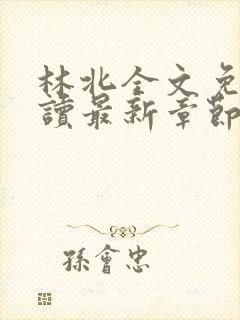 林北全文免
讀最新章節
孫會忠